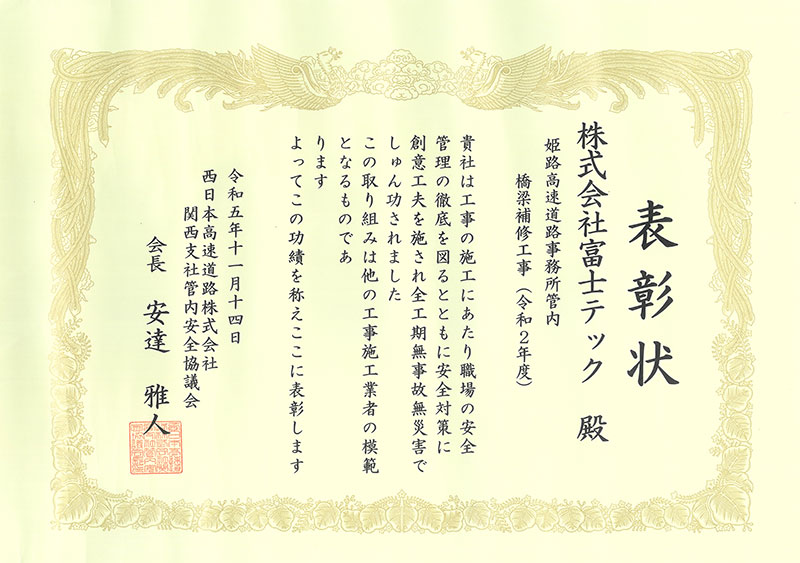 表彰状
株式会社富士テック 殿
姫路高速道路事務所管内
橋梁補修工事（令和２年度）
貴社は工事の施工にあたり職場の安全
管理の徹底を図るとともに安全対策に
創意工夫を施され全工期無事故無災害で
しゅん功されました
この取り組みは他の工事施工業者の模範
となるものであ
ります
よってこの功績を称えここに表彰します
令和五年十一月十四日
西日本高速道路株式会社
関西支社管内安全協議会
会長 安達 雅人